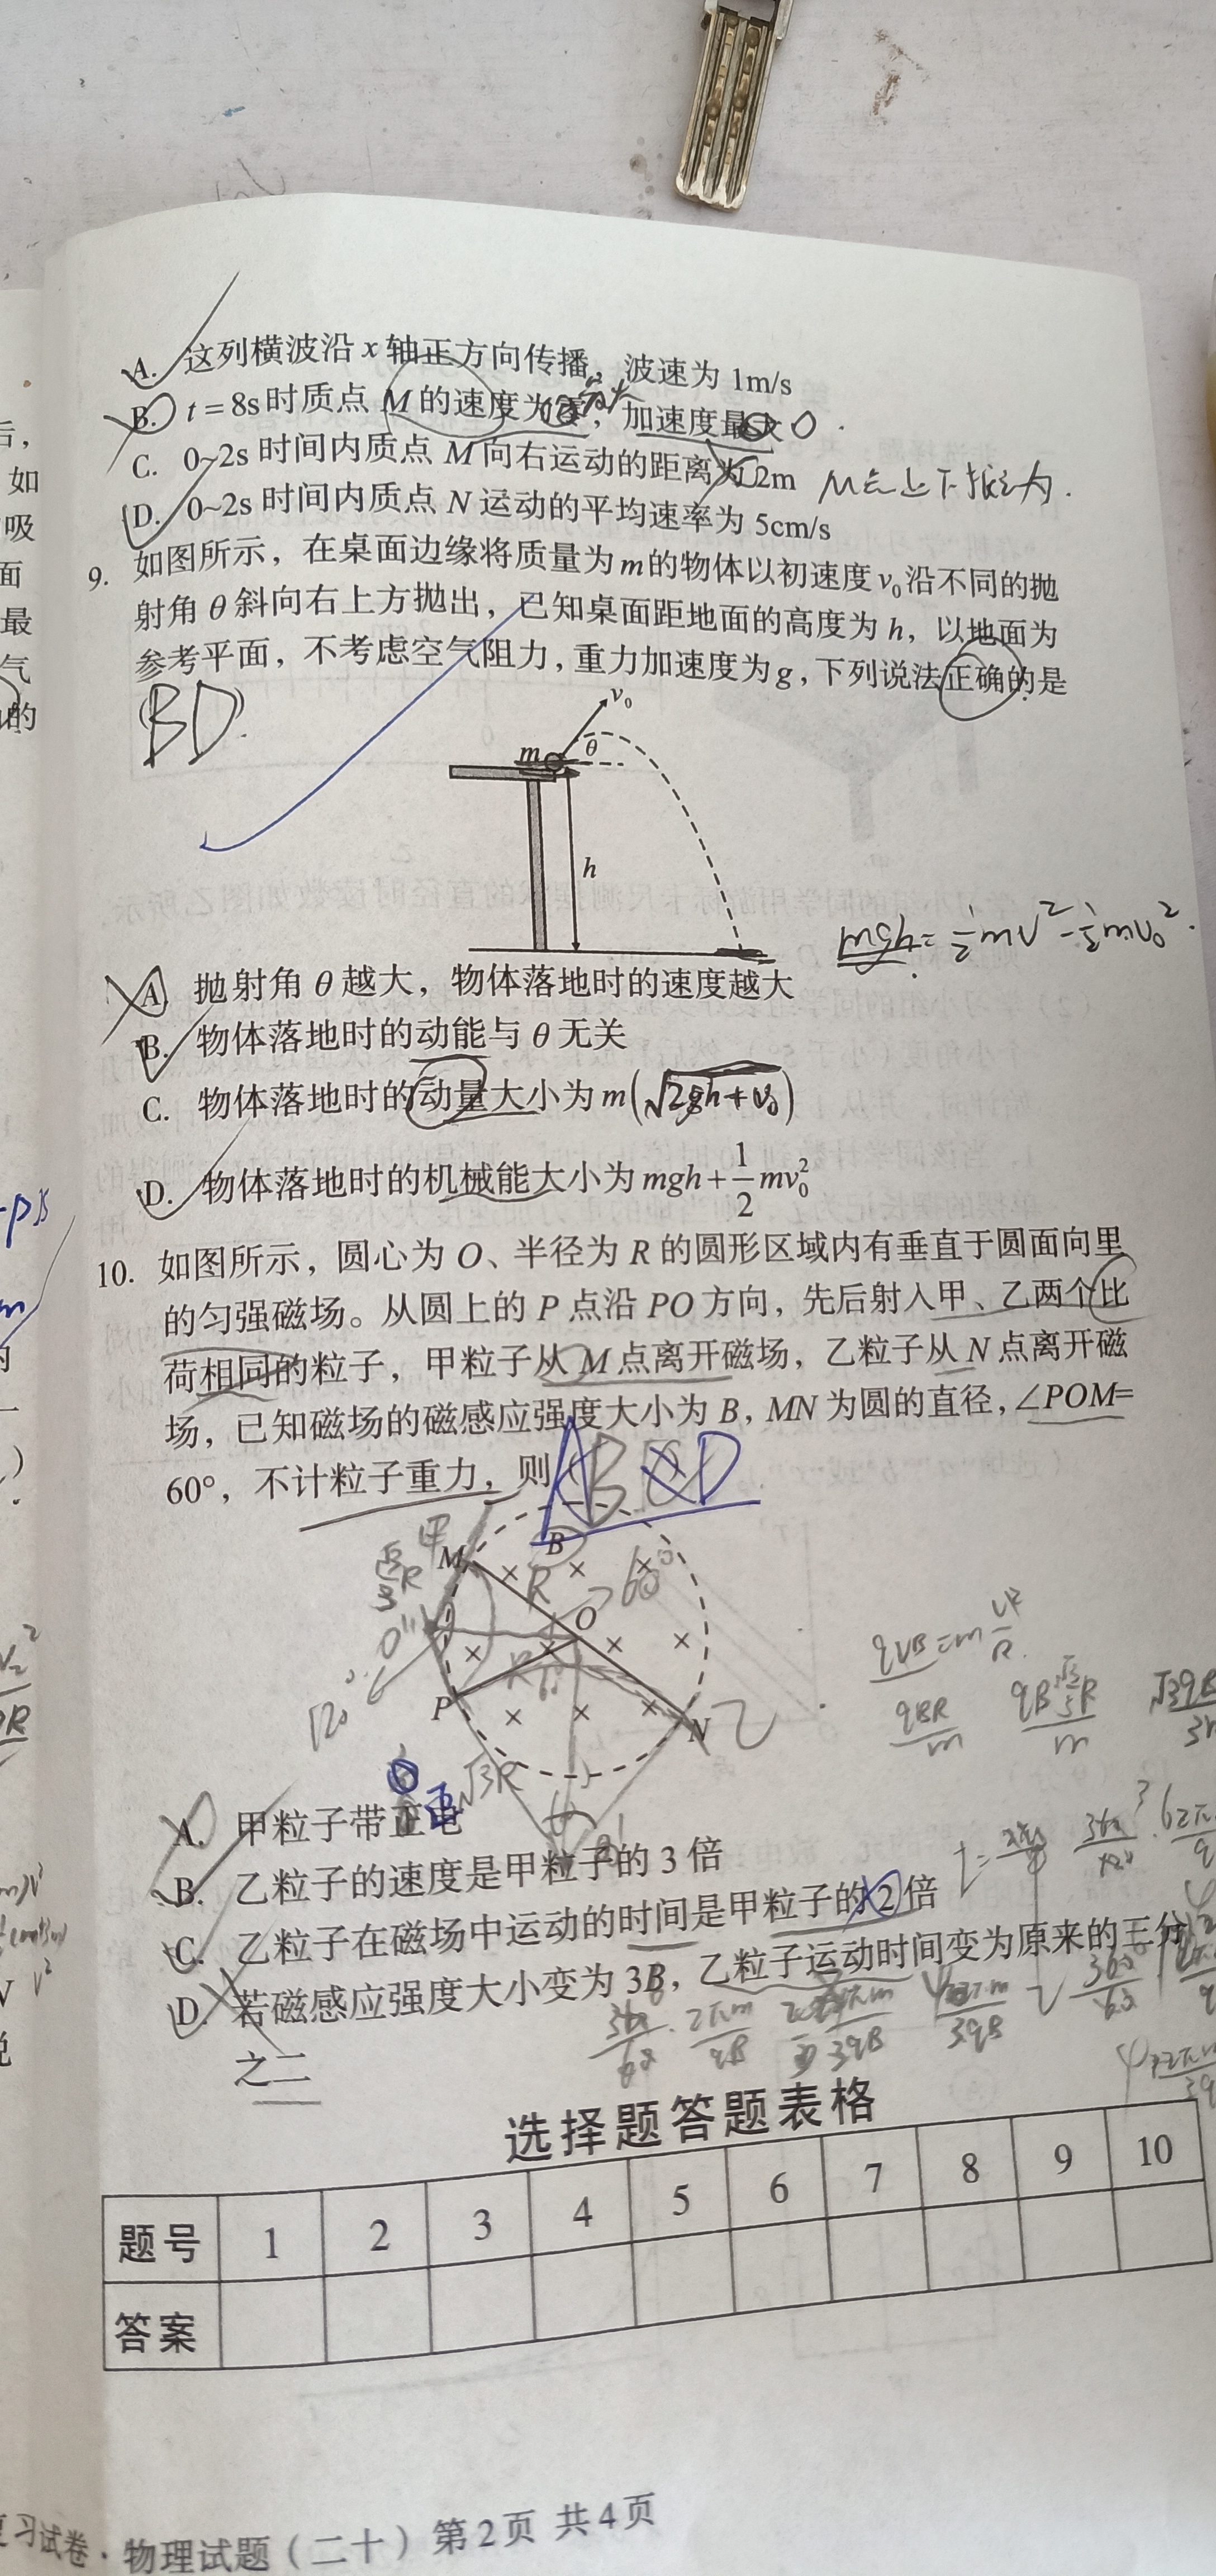 A. 这列横波沿 x 轴正方向传播，波速为 1m/s
B. t = 8s 时质点 M 的速度为 ，加速度最大 0 .
C. 0~2s 时间内质点 M 向右运动的距离为 2m
D. 0~2s 时间内质点 N 运动的平均速率为 5cm/s
9. 如图所示，在桌面边缘将质量为 m 的物体以初速度 v₀ 沿不同的抛
射角 θ 斜向右上方抛出，已知桌面距地面的高度为 h，以地面为
参考平面，不考虑空气阻力，重力加速度为 g，下列说法正确的是
BD
v₀
m
θ
h
mgh = ½mv² - ½mv₀²
A. 抛射角 θ 越大，物体落地时的速度越大
B. 物体落地时的动能与 θ 无关
C. 物体落地时的动量大小为 m(√2gh + v₀)
D. 物体落地时的机械能大小为 mgh + 1/2 mv₀²
10. 如图所示，圆心为 O、半径为 R 的圆形区域内有垂直于圆面向里
的匀强磁场。从圆上的 P 点沿 PO 方向，先后射入甲、乙两个比
荷相同的粒子，甲粒子从 M 点离开磁场，乙粒子从 N 点离开磁
场，已知磁场的磁感应强度大小为 B，MN 为圆的直径，∠POM=
60°，不计粒子重力，则
ABD
甲
M
B
R
60°
O
O''
R
P
N
乙
120°
√3R
qvB = m
qBR/m
A. 甲粒子带正电
B. 乙粒子的速度是甲粒子的 3 倍
C. 乙粒子在磁场中运动的时间是甲粒子的 2 倍
D. 若磁感应强度大小变为 3B，乙粒子运动时间变为原来的三分
之二
选择题答题表格
题号 1 2 3 4 5 6 7 8 9 10
答案
复习试卷·物理试题（二十）第2页 共4页